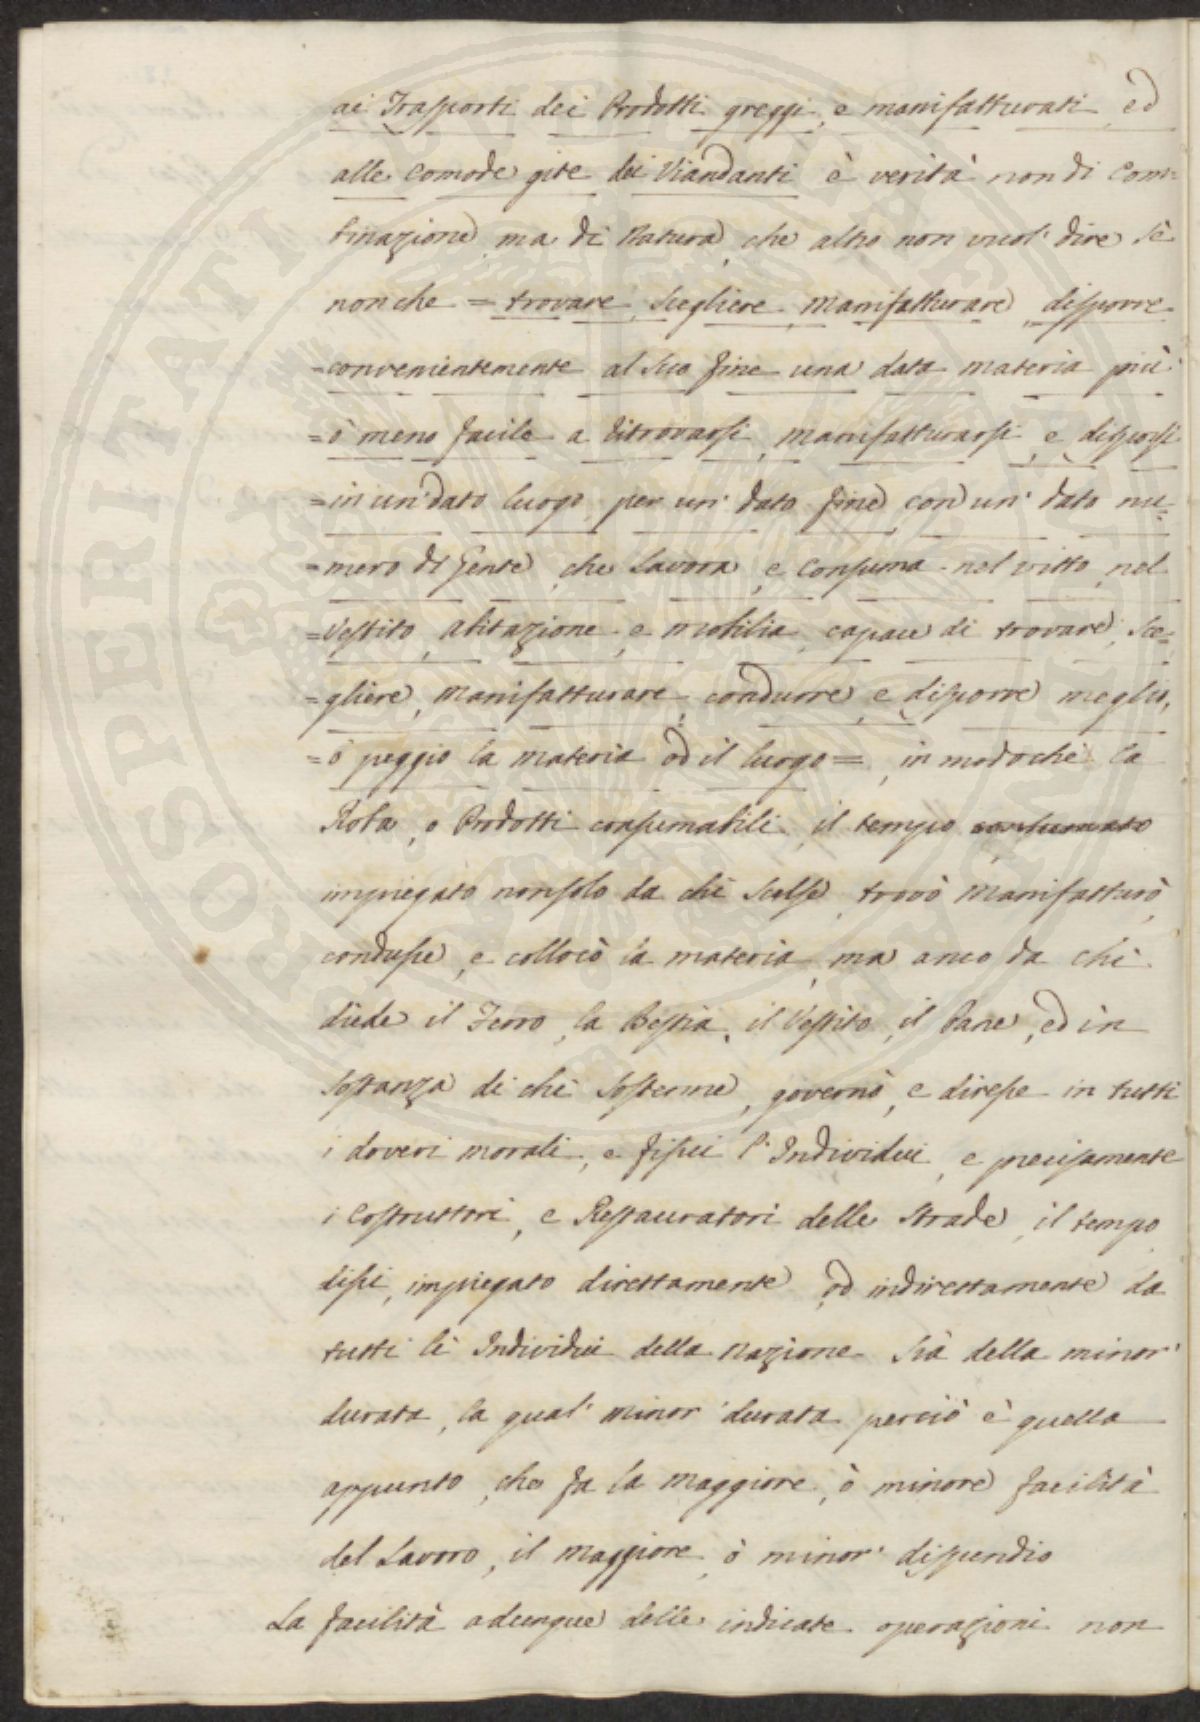 ai Trasporti dei Prodotti greggi, e manifatturati, ed
alle comode gite dei Viandanti è verità non di Com=
binazione, ma di Natura, che altro non vuol' dire sè
non che = trovare, scegliere, manifatturare, disporre
=convenientemente al suo fine una data materia più
=ò meno facile a ritrovarsi, manifatturarsi, e disporsi
=in un' dato luogo, per un' dato fine, con un' dato nu=
=mero di Gente, che lavora, e consuma nel vitto, nel
=Vestito, abitazione, e mobilia, capace di trovare, sce=
=gliere, manifatturare, condurre, e disporre meglio,
=ò peggio la materia od il luogo=, in modo chè la
Roba, o Prodotti consumabili, il tempo consumato
impiegato non solo da chi scelse, trovò manifatturò,
condusse, e collocò la materia, ma anco da chi
diede il Ferro, la Bestia, il Vestito, il Pane, ed in
sostanza di chi sostenne, governò, e diresse in tutti
i doveri morali, e fisici l'Individui, e precisamente
i Costruttori, e Restauratori delle Strade, il tempo
dissi, impiegato direttamente, od indirettamente da
tutti li Individui della nazione sia della minor'
durata, la qual' minor' durata perciò è quella
appunto, che fa la maggiore, ò minore facilità
del Lavoro, il maggiore, ò minor' dispendio
La facilità adunque delle indicate operazioni non
PROSPERITATI PUBLICAE AUGENDAE